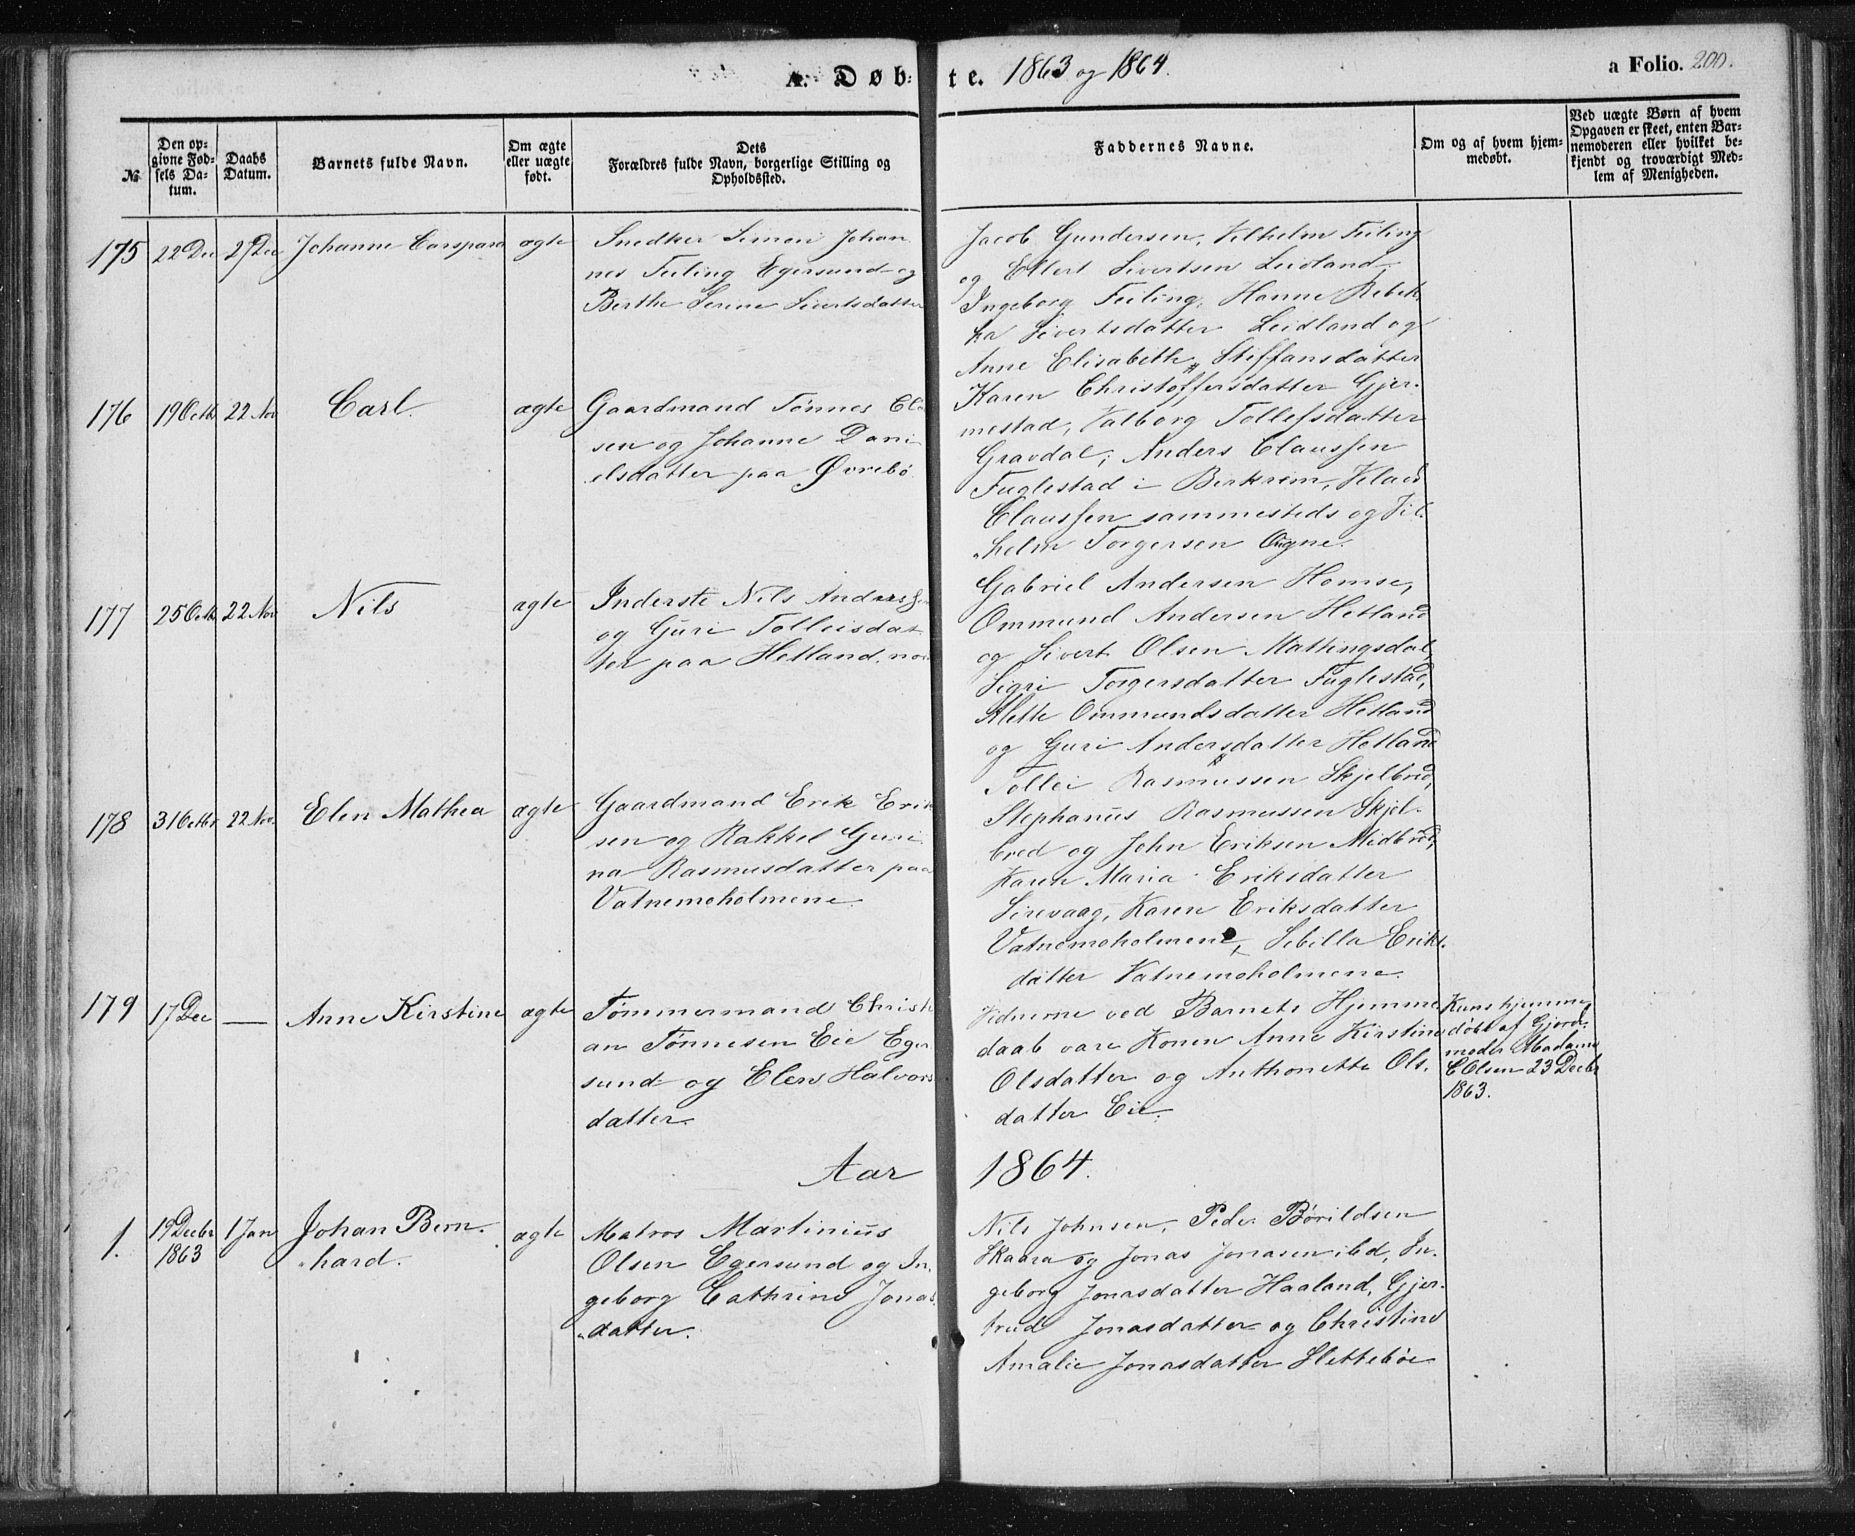 A. Døbte. 1863 og 1864.
a Folio. 200.
№
Den op-
givne Fød-
sels Da-
tum.
Daabs
Datum.
Barnets fulde Navn.
Om ægte
eller uægte
født.
Dets
Forældres fulde Navn, borgerlige Stilling og
Opholdssted.
Faddernes Navne.
Om og af hvem hjem-
medøbt.
Ved uægte Børn af hvem
Opgaven er skeet, enten Bar-
nemoderen eller hvilket be-
kjendt og troværdigt Med-
lem af Menigheden.
175 22 Dec 27 Dec Johanne Caspara ægte
Snedker Simon Johan
nes Feiling Egersund og
Berthe Serine Sivertsdatter
Jacob Gundersen, Vilhelm Feiling
og Ellert Sivertsen Leidland
Ingeborg Feiling, Hanne Rebek
ka Sivertsdatter Leidland og
Anne Elisabeth Stiffansdatter
176 19 Octb 22 Nov Carl. ægte
Gaardmand Tønnes Cla
sen og Johanne Dani
elsdatter paa Øvrebø
Karen Christoffersdatter Gjer-
mestad, Valborg Tollefsdatter
Gravdal, Anders Claussen
Fuglestad i Birkrem, Klaus
Claussen sammesteds og Vil-
helm Torgersen Ougne.
177 25 Octb 22 Nov Nils ægte
Inderste Nils Anders
og Guri Tolleisdat
ter paa Hetland, no
Gabriel Andersen Homse,
Ommund Andersen Hetland
og Sivert Olsen Mattingsdal,
Sigri Torgersdatter Fuglestad,
Mette Ommundsdatter Hetland
og Guri Andersdatter Hetland
178 31 Octbr 22 Nov. Elen Mathea ægte
Gaardmand Erik Erik
sen og Rakkel Guri
na Rasmusdatter paa
Vatnemoholmene.
Tollei Rasmussen Skjelbred,
Stephanus Rasmussen Skjel-
bred og John Eriksen Midbrød,
Karen Maria Eriksdatter
Sirevaag, Karen Eriksdatter
Vatnemoholmene, Sibilla Eriks-
datter Vatnemoholmene.
179 17 Dec — Anne Kirstine ægte
Tømmermand Christi
an Tønnesen Eie Eger
sund og Elen Halvors
datter.
Vidnerne ved Barnets Hjemme
daab vare Konen Anne Kirstine
Olsdatter og Anthonette Ols-
datter Eie.
Kun hjemme
døbt af Gjorde-
moder Madame
C Olsen 23 Decbr
1863.
Aar 1864.
1. 19 Decbr 1863 1 Jan Johan Bern-
hard. ægte
Matros Martinius
Olsen Egersund og In-
geborg Cathrine Jonas
datter.
Nils Johnsen, Peder Bórildsen
Skaara og Jonas Jonasen ibd, In-
geborg Jonasdatter Haaland, Gjer-
trud Jonasdatter og Christine
Amalie Jonasdatter Slettebøe